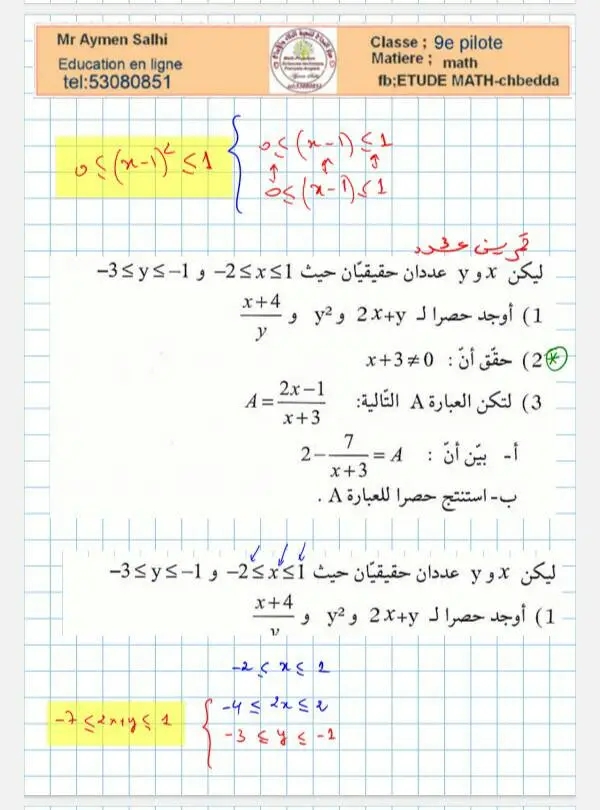 Mr Aymen Salhi
Education en ligne
tel:53080851
Classe ; 9e pilote
Matiere ; math
fb;ETUDE MATH-chbedda
0≤(x-1)²≤1
0≤(x-1)≤1
0≤(x-1)≤1
تمرين عدد 3
ليكن x و y عددان حقيقيّان حيث -2≤x≤1 و -3≤y≤-1
1) أوجد حصرا لـ 2x+y و y² و (x+4)/y
2) حقّق أنّ : x+3≠0
3) لتكن العبارة A التّالية: A=(2x-1)/(x+3)
أ- بيّن أنّ : A=2-7/(x+3)
ب- استنتج حصرا للعبارة A .
ليكن x و y عددان حقيقيّان حيث -2≤x≤1 و -3≤y≤-1
1) أوجد حصرا لـ 2x+y و y² و (x+4)/y
-2≤x≤1
-4≤2x≤2
-3≤y≤-1
-7≤2x+y≤1